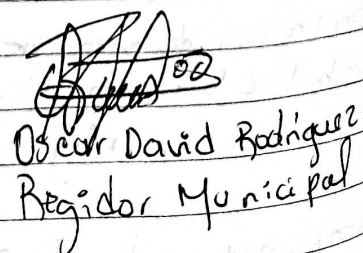 Oscar David Rodríguez
Regidor Municipal